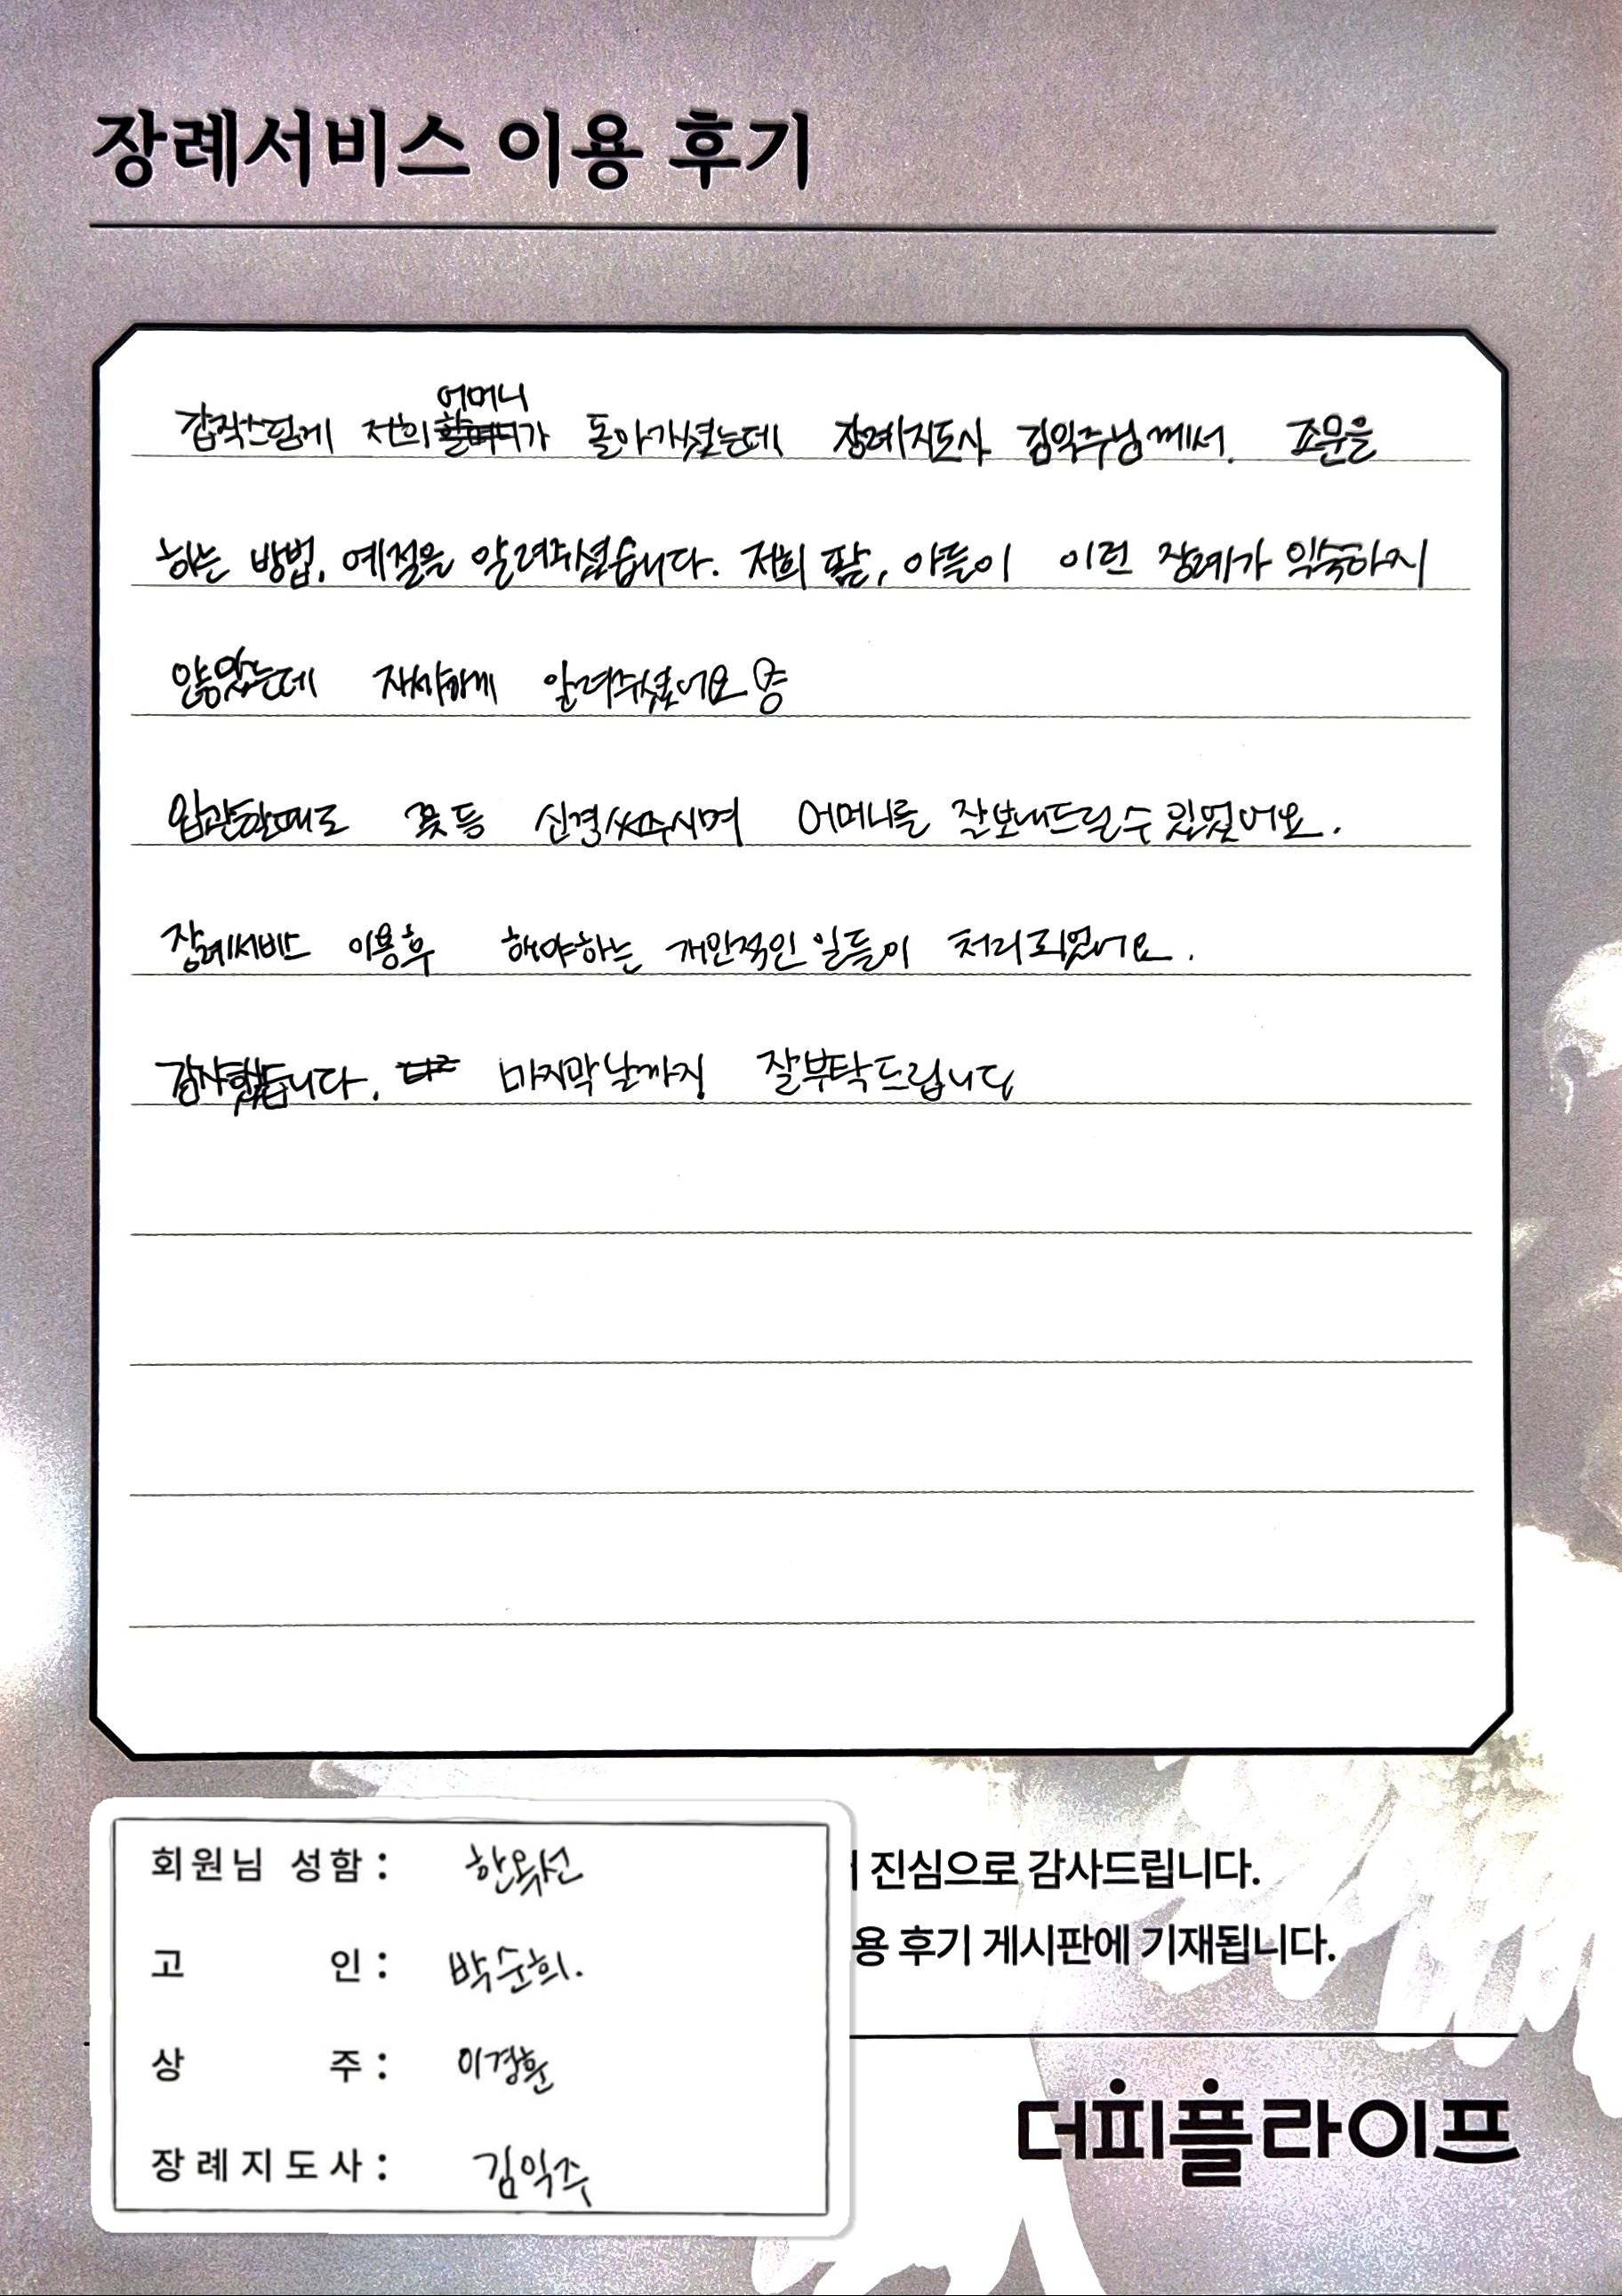 장례서비스 이용 후기
어머니
갑작스럽게 저희 가 돌아가셨는데 장례지도사 김익주님께서. 조문을
하는 방법, 예절을 알려주셨습니다. 저희 딸, 아들이 이런 장례가 익숙하지
않았는데 자세하게 알려주셨어요
입관할때도 꽃 등 신경써주시며 어머니를 잘보내드릴수 있었어요.
장례서비스 이용후 해야하는 개인적인 일들이 처리되었어요.
감사했습니다. 마지막날까지 잘부탁드립니다
회원님 성함 : 한옥선
고 인 : 박순희.
상 주 : 이경훈
장례지도사 : 김익주
진심으로 감사드립니다.
용 후기 게시판에 기재됩니다.
더피플라이프